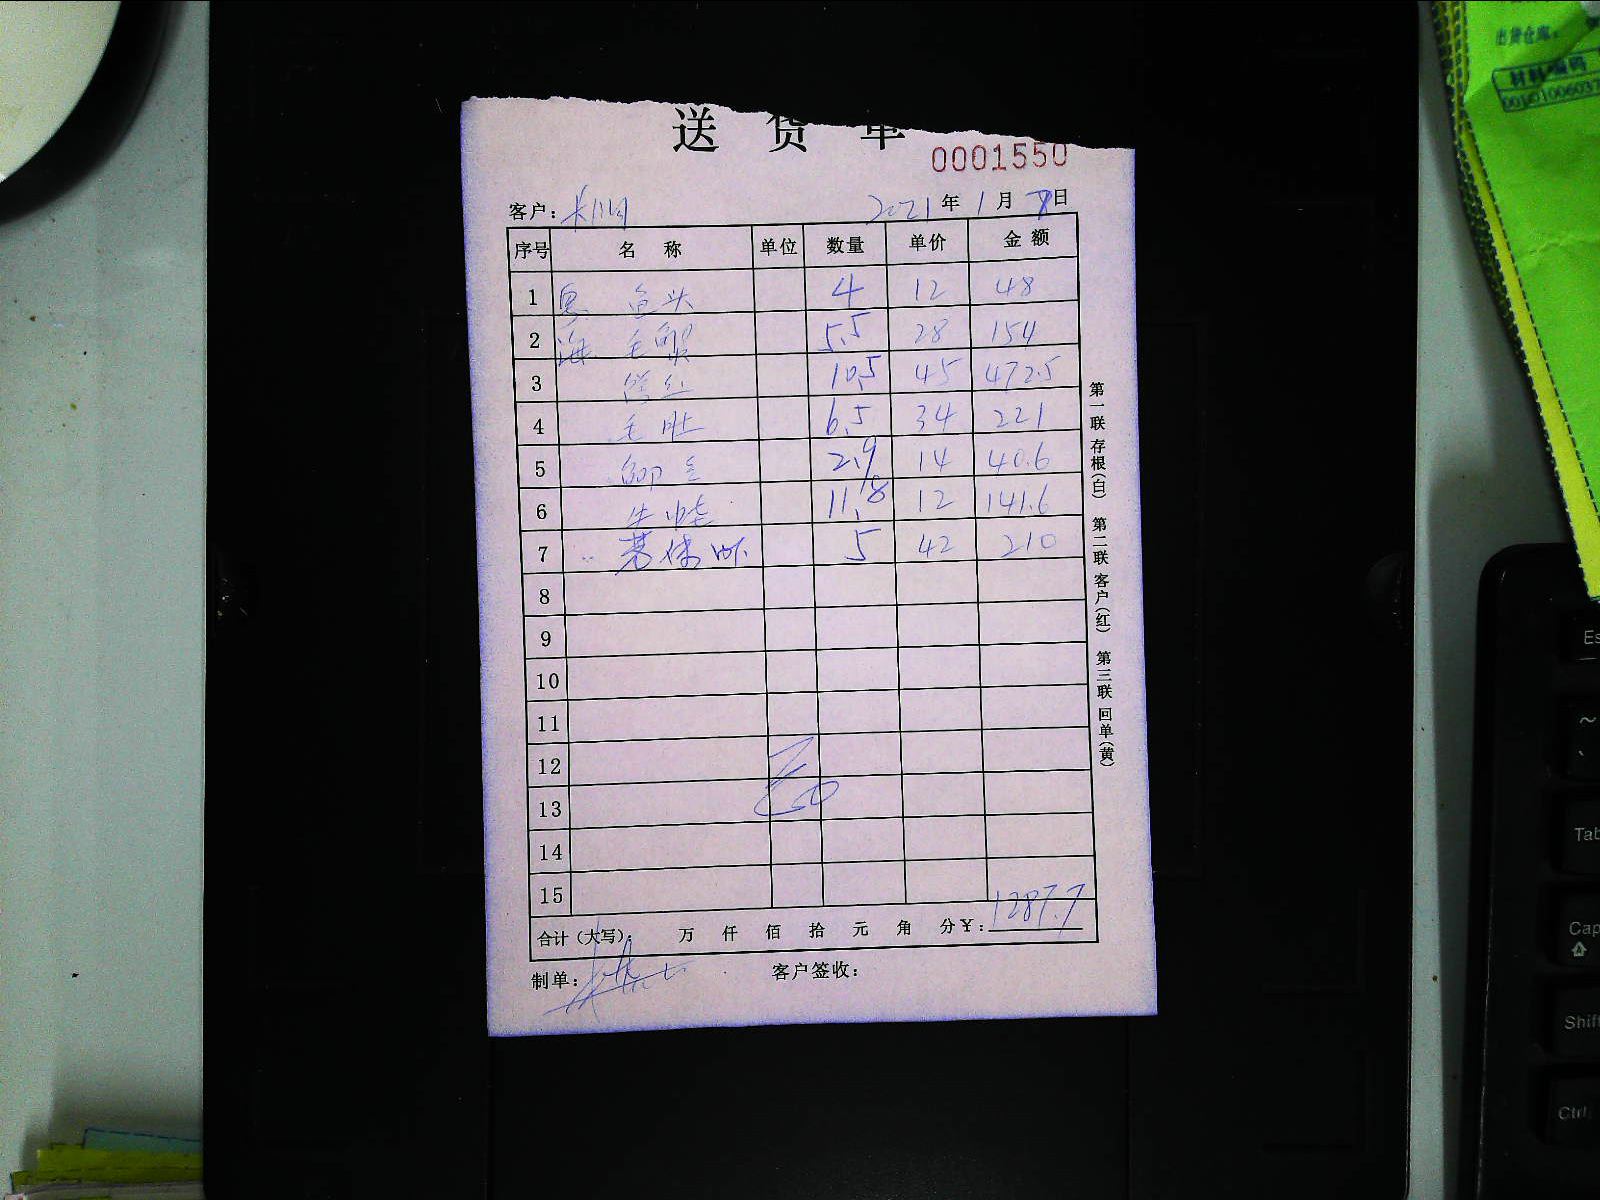 送货单
0001550
客户：
2021年1月8日
序号 名 称 单位 数量 单价 金额
1 鱼头 4 12 48
2 海 毛蟹 5.5 28 154
3 10.5 45 472.5
4 毛肚 6.5 34 221
5 2.9 14 40.6
6 11.8 12 141.6
7 5 42 210
8
9
10
11
12
13
14
15
合计（大写）： 万 仟 佰 拾 元 角 分 ¥：1287.7
制单： 客户签收：
第一联 存根（白） 第二联 客户（红） 第三联 回单（黄）
出货仓库：
材料编码
Es
~
、
Tab
Cap
Shift
Ctrl